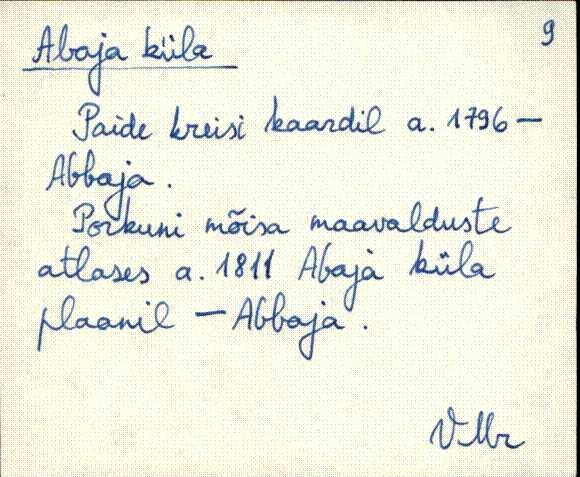 9
Abaja küla
Paide kreisi kaardil a. 1796 —
Abbaja.
Porkuni mõisa maavalduste
atlases a. 1811 Abaja küla
plaanil — Abbaja.